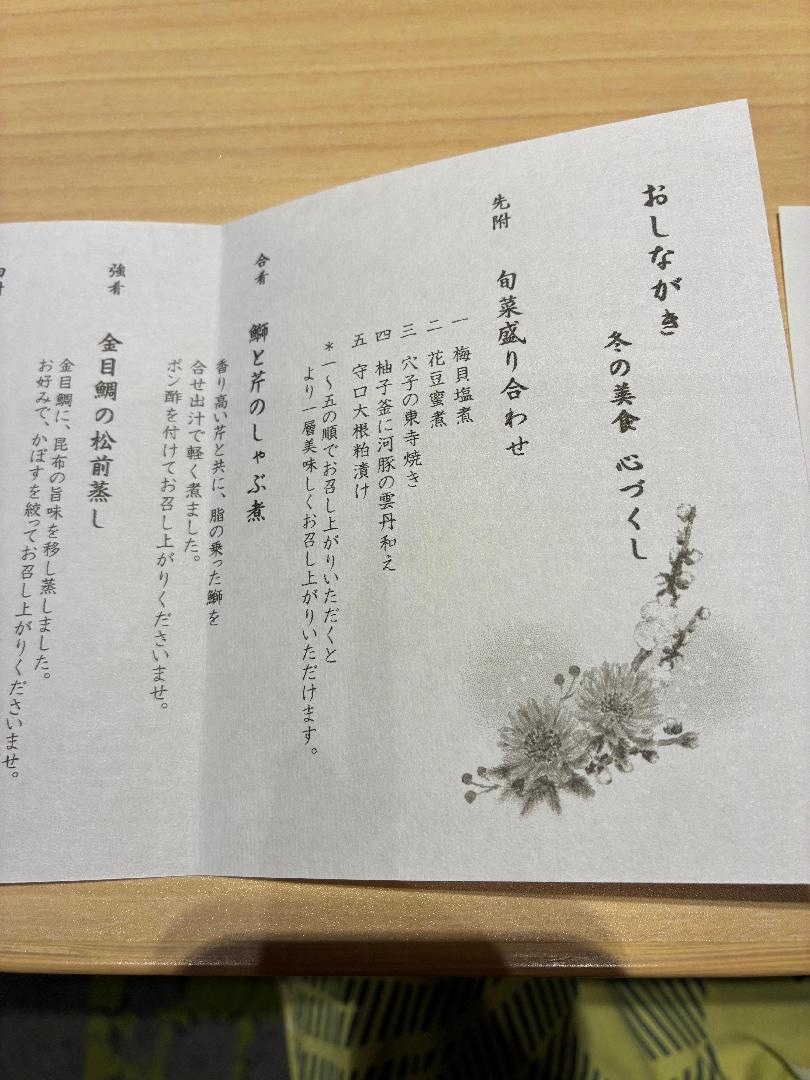 おしながき
冬の美食 心づくし
先附 旬菜盛り合わせ
一 梅貝塩煮
二 花豆蜜煮
三 穴子の東寺焼き
四 柚子釜に河豚の雲丹和え
五 守口大根粕漬け
＊一～五の順でお召し上がりいただくと
より一層美味しくお召し上がりいただけます。
合肴 鰤と芹のしゃぶ煮
香り高い芹と共に、脂の乗った鰤を
合せ出汁で軽く煮ました。
ポン酢を付けてお召し上がりくださいませ。
強肴 金目鯛の松前蒸し
金目鯛に、昆布の旨味を移し蒸しました。
お好みで、かぼすを絞ってお召し上がりくださいませ。